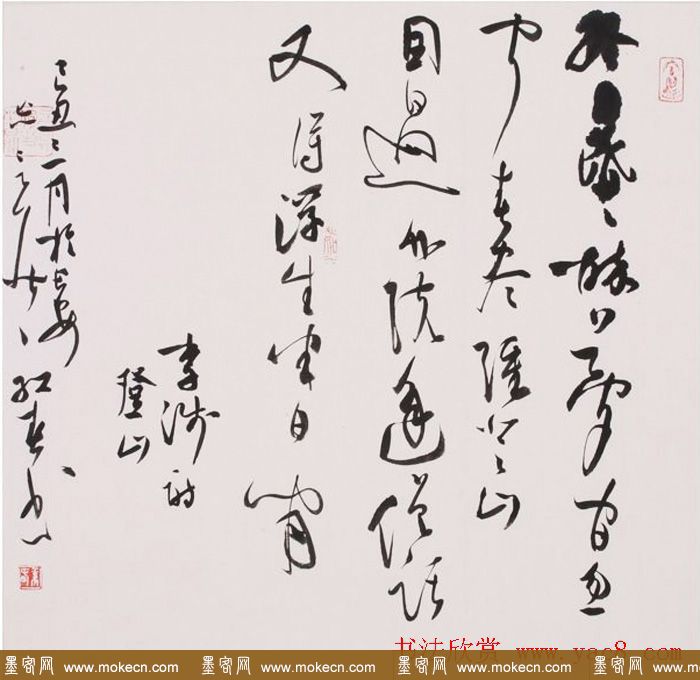 終日昏〻醉夢間忽
闻春尽強登山
因過竹院逢僧話
又得浮生半日闲
李涉詩
登山
己丑三月於長安
书法欣赏 www.yac8.com
墨客网 www.mokecn.com 墨客网 www.mokecn.com 墨客网 www.mokecn.com 墨客网 www.mokecn.com